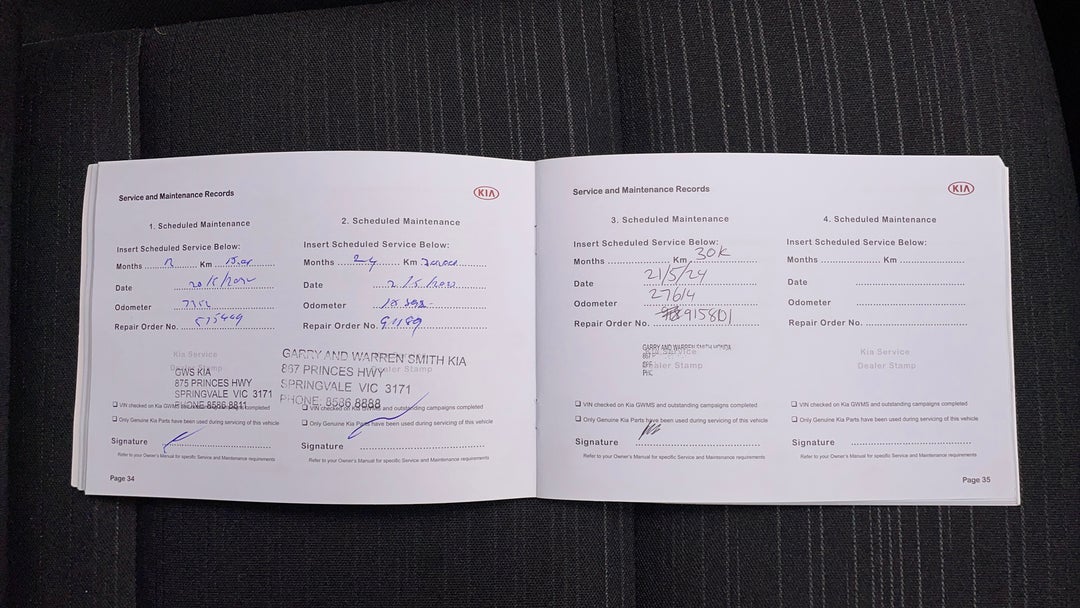 Service and Maintenance Records
KIA
1. Scheduled Maintenance
Insert Scheduled Service Below:
Months Km
Date
Odometer
Repair Order No.
Kia Service
Dealer Stamp
GWS KIA
875 PRINCES HWY
SPRINGVALE VIC 3171
PHONE 8586 8811
❑ VIN checked on Kia GWMS and outstanding campaigns completed
❑ Only Genuine Kia Parts have been used during servicing of this vehicle
Signature
Refer to your Owner's Manual for specific Service and Maintenance requirements
2. Scheduled Maintenance
Insert Scheduled Service Below:
Months 24 Km
Date
Odometer
Repair Order No. 91189
Dealer Stamp
GARRY AND WARREN SMITH KIA
867 PRINCES HWY
SPRINGVALE VIC 3171
PHONE: 8586 8888
❑ VIN checked on Kia GWMS and outstanding campaigns completed
❑ Only Genuine Kia Parts have been used during servicing of this vehicle
Signature
Refer to your Owner's Manual for specific Service and Maintenance requirements
Page 34
Service and Maintenance Records
KIA
3. Scheduled Maintenance
Insert Scheduled Service Below:
Months Km 30K
Date 21/5/24
Odometer 27614
Repair Order No.
GARRY AND WARREN SMITH HONDA
Kia Service
Dealer Stamp
❑ VIN checked on Kia GWMS and outstanding campaigns completed
❑ Only Genuine Kia Parts have been used during servicing of this vehicle
Signature
Refer to your Owner's Manual for specific Service and Maintenance requirements
4. Scheduled Maintenance
Insert Scheduled Service Below:
Months Km
Date
Odometer
Repair Order No.
Kia Service
Dealer Stamp
❑ VIN checked on Kia GWMS and outstanding campaigns completed
❑ Only Genuine Kia Parts have been used during servicing of this vehicle
Signature
Refer to your Owner's Manual for specific Service and Maintenance requirements
Page 35